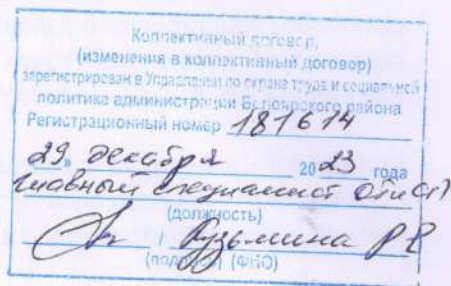 Коллективный договор,
(изменения в коллективный договор)
зарегистрирован в Управлении по охране труда и социальной
политике администрации Белоярского района
Регистрационный номер 181614
29 „ декабря 2023 года
главный специалист ОТиСП
(должность)
/ Кузьмина Р
(подпись) (ФИО)